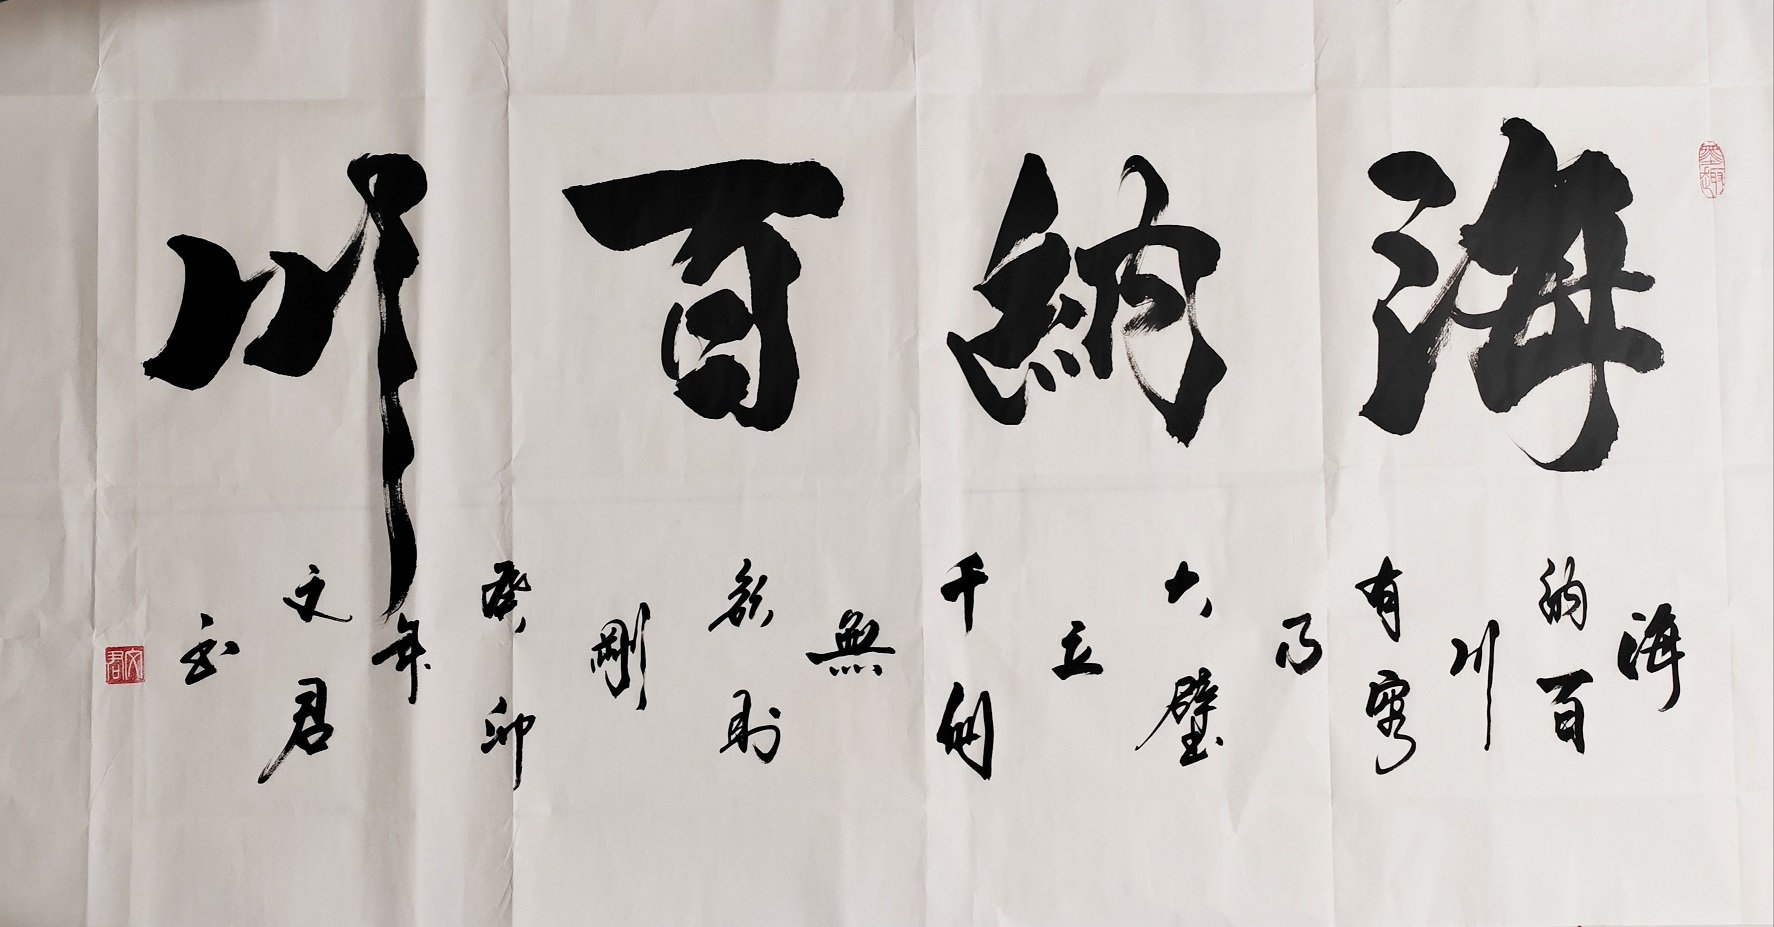 墨趣
海納百川
海
納百
川
有容
乃
大壁
立
千仞
無
欲則
剛
癸卯
年
文君
书
文君